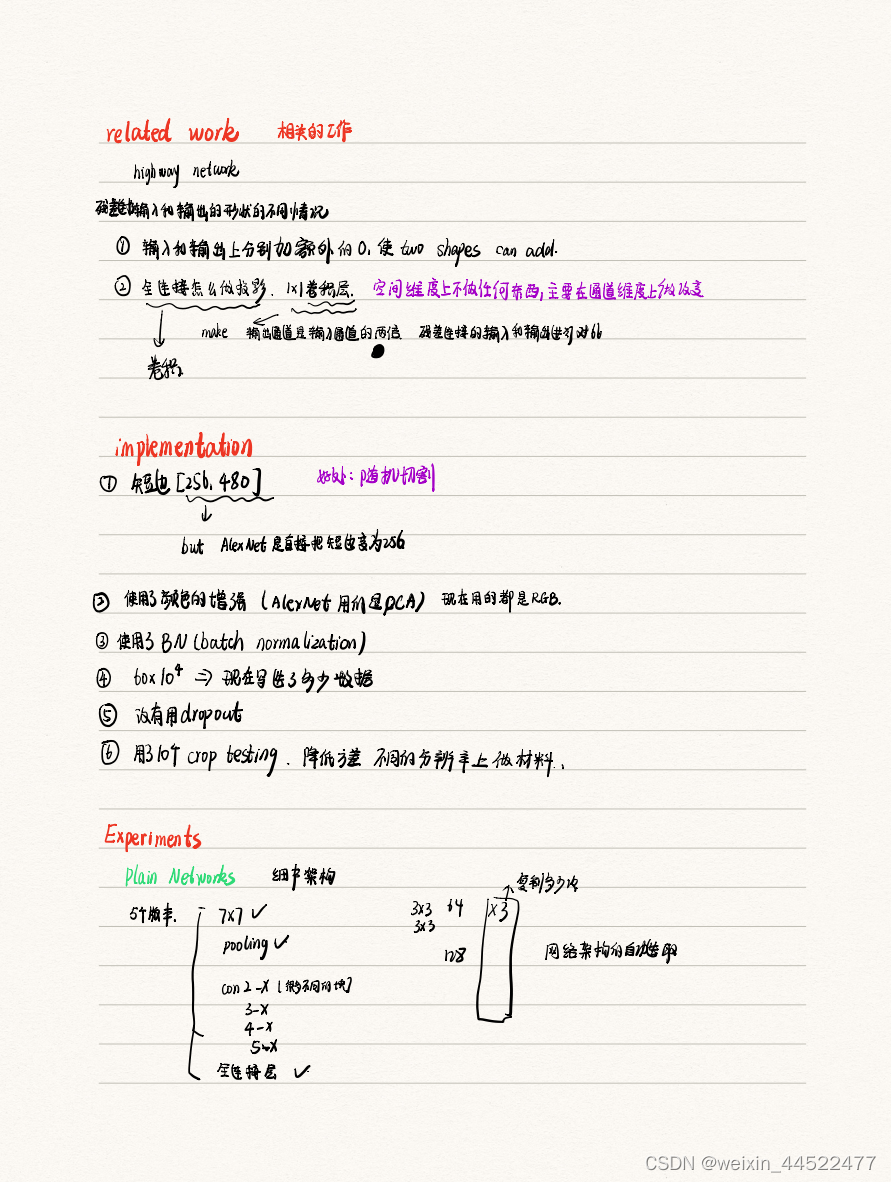 related work 相关的工作
highway network
残差块输入和输出的形状的不同情况
① 输入和输出上分别加额外的0，使 two shapes can add.
② 全连接怎么做投影. 1x1卷积层. 空间维度上不做任何东西，主要在通道维度上做改变
make 输出通道是输入通道的两倍 残差连接的输入和输出进行对比
卷积.
implementation
① 短边 [256, 480] 好处：随机切割
but AlexNet 是直接把短边变为256
② 使用了颜色的增强 (AlexNet 用的是PCA) 现在用的都是RGB.
③ 使用了BN (batch normalization)
④ 60x10⁴ => 现在 了多少数据
⑤ 没有用dropout
⑥ 用了10个 crop testing. 降低方差 不同的分辨率上做材料.
Experiments
Plain Networks 细节架构
复制多少次
5个 7x7 ✓ 3x3 64 x3
3x3
pooling ✓ 128 网络架构的自动
con 2-x
3-x
4-x
5-x
全连接层 ✓
CSDN @weixin_44522477